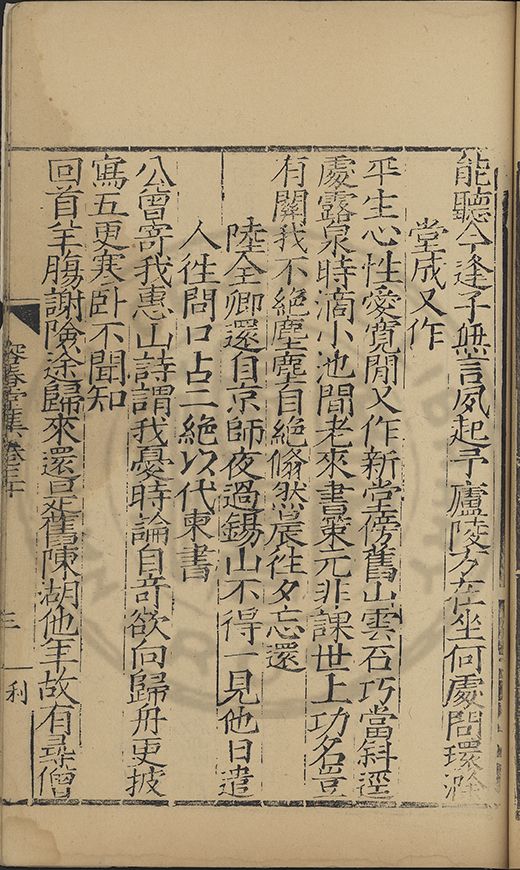 能聽今逢子無言夙起予廬陵方在坐何處問環滁
堂成又作
平生心性愛寬閒又作新堂傍舊山雲石巧當斜逕
處露泉時滴小池閒老來書策元非課世上功名豈
有關我不絕塵塵自絕翛然晨往夕忘還
陸全卿還自京師夜過錫山不得一見他日遣
人往問口占二絕以代柬書
公曾寄我惠山詩謂我憂時論自奇欲向歸舟更披
寫五更寒卧不聞知
回首羊腸謝險途歸來還是舊陳湖他年故有尋僧
容春堂集卷三十
三
利